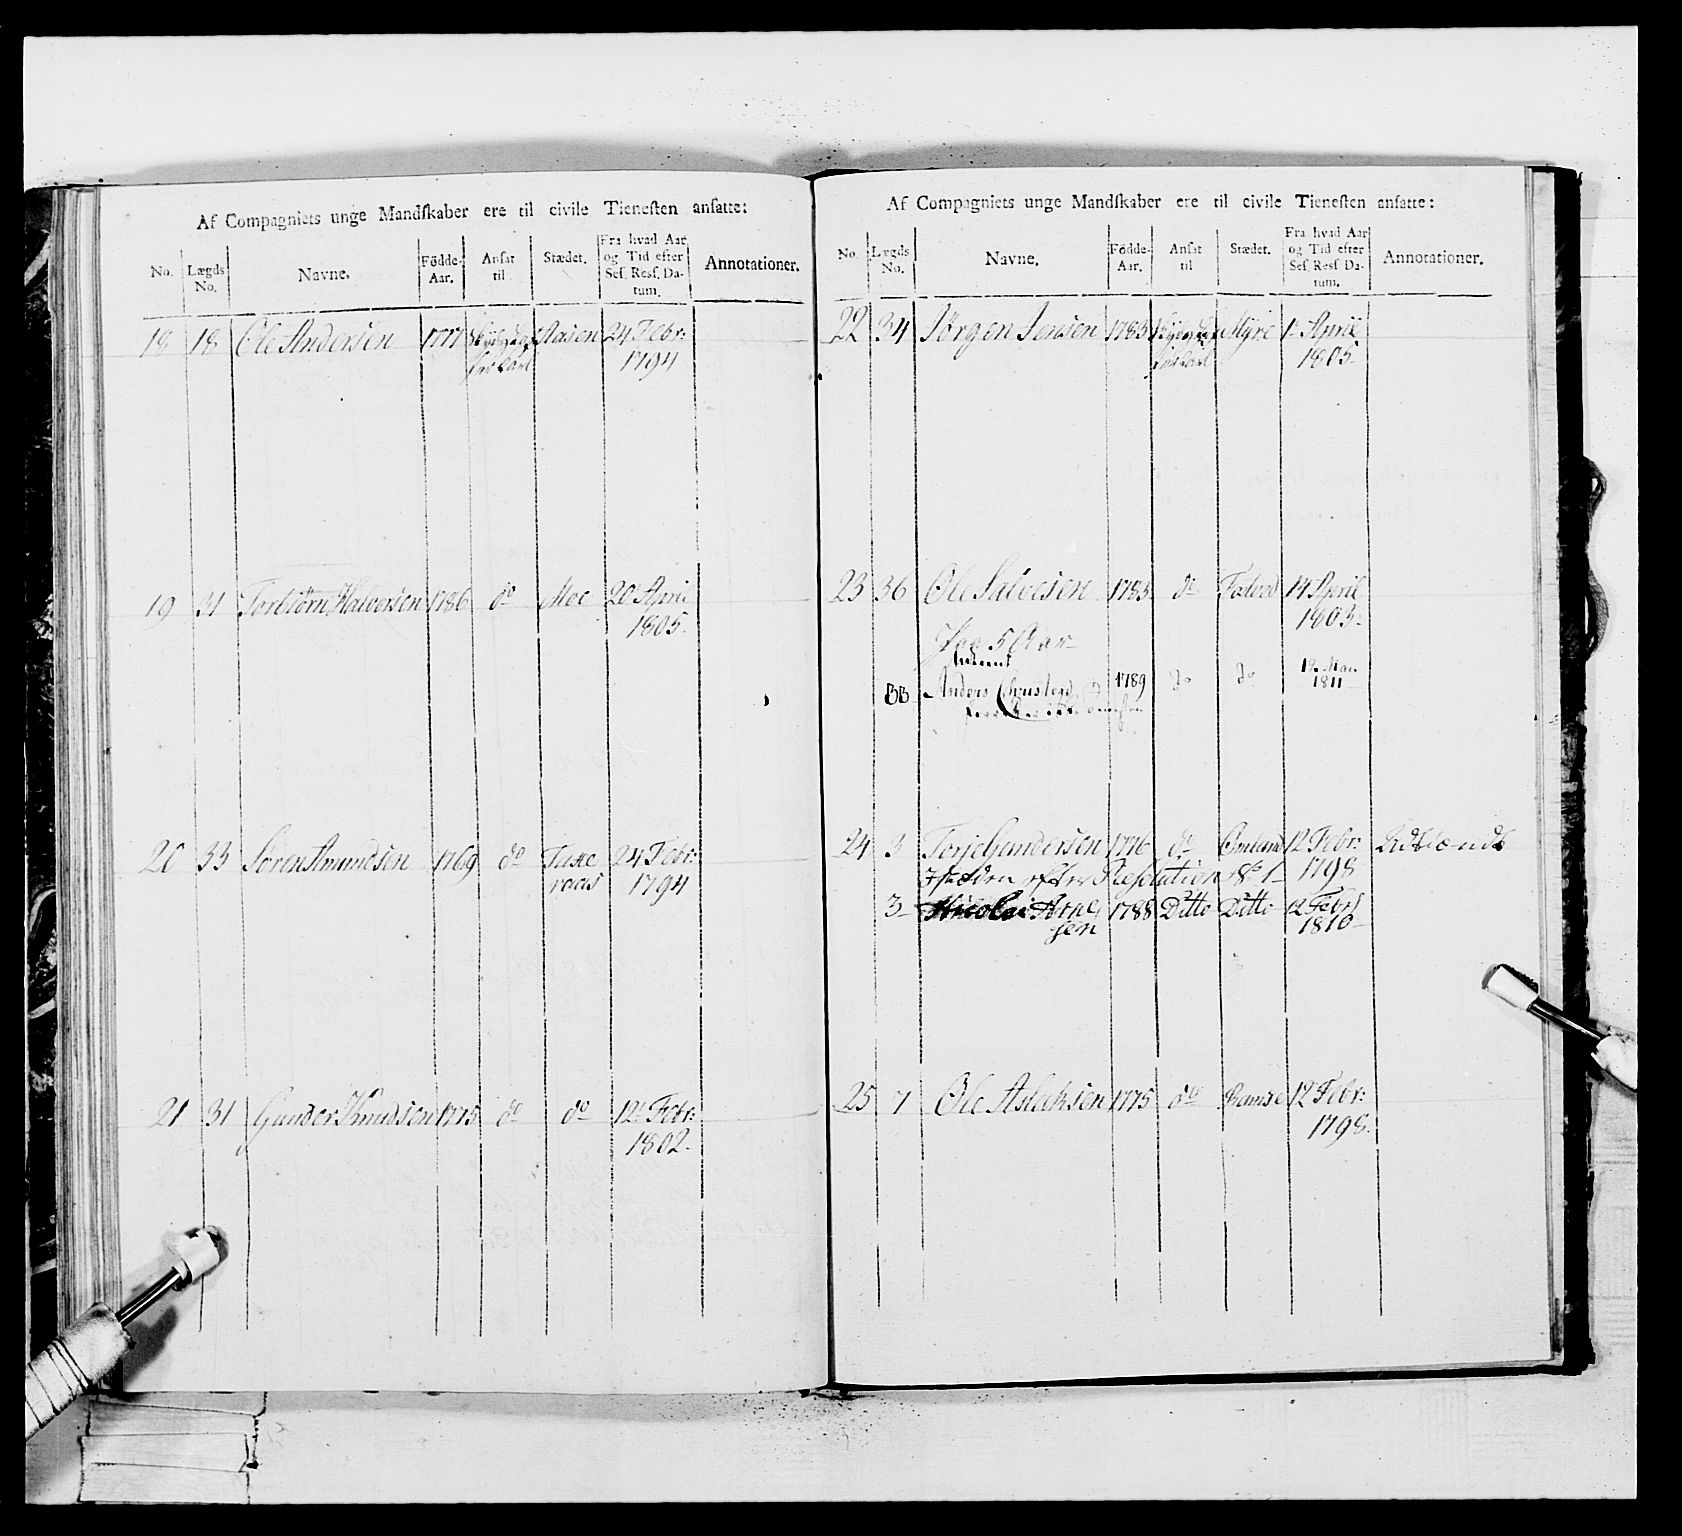 Af Compagniets unge Mandſkaber ere til civile Tieneſten anſatte:
No. Lægds No. Navne. Födde-Aar. Anſat til Stædet. Fra hvad Aar og Tid efter Seſ. Reſſ. Da-tum. Annotationer.
18 18 Ole Andersen 1777 Aasen 24 Febr:
1794
19 31 Torbiörn Halvorsen 1786 do Moe 20 April
1805.
20 33 Sören Amundsen 1769 do 24 Febr:
1794
21 31 Gunder Knudsen 1775 do do 12 Febr:
1802.
Af Compagniets unge Mandſkaber ere til civile Tieneſten anſatte:
No. Lægds No. Navne. Födde-Aar. Anſat til Stædet. Fra hvad Aar og Tid efter Seſ. Reſſ. Da-tum. Annotationer.
22 34 Jörgen Jensen 1783 Myre 1 April
1803.
23 36 Ole Salvesen 1783 do 14 April
1803.
5 Aar
Anders 1789 do do
1811
24 3 Torje Gundersen 1776 do 12 Febr:
efter Resolution 1798
3 Nicolai Arne 1788 Ditto Ditto 12 Febr
sen 1810
25 7 Ole Aslaksen 1775 do 12 Febr:
1798.